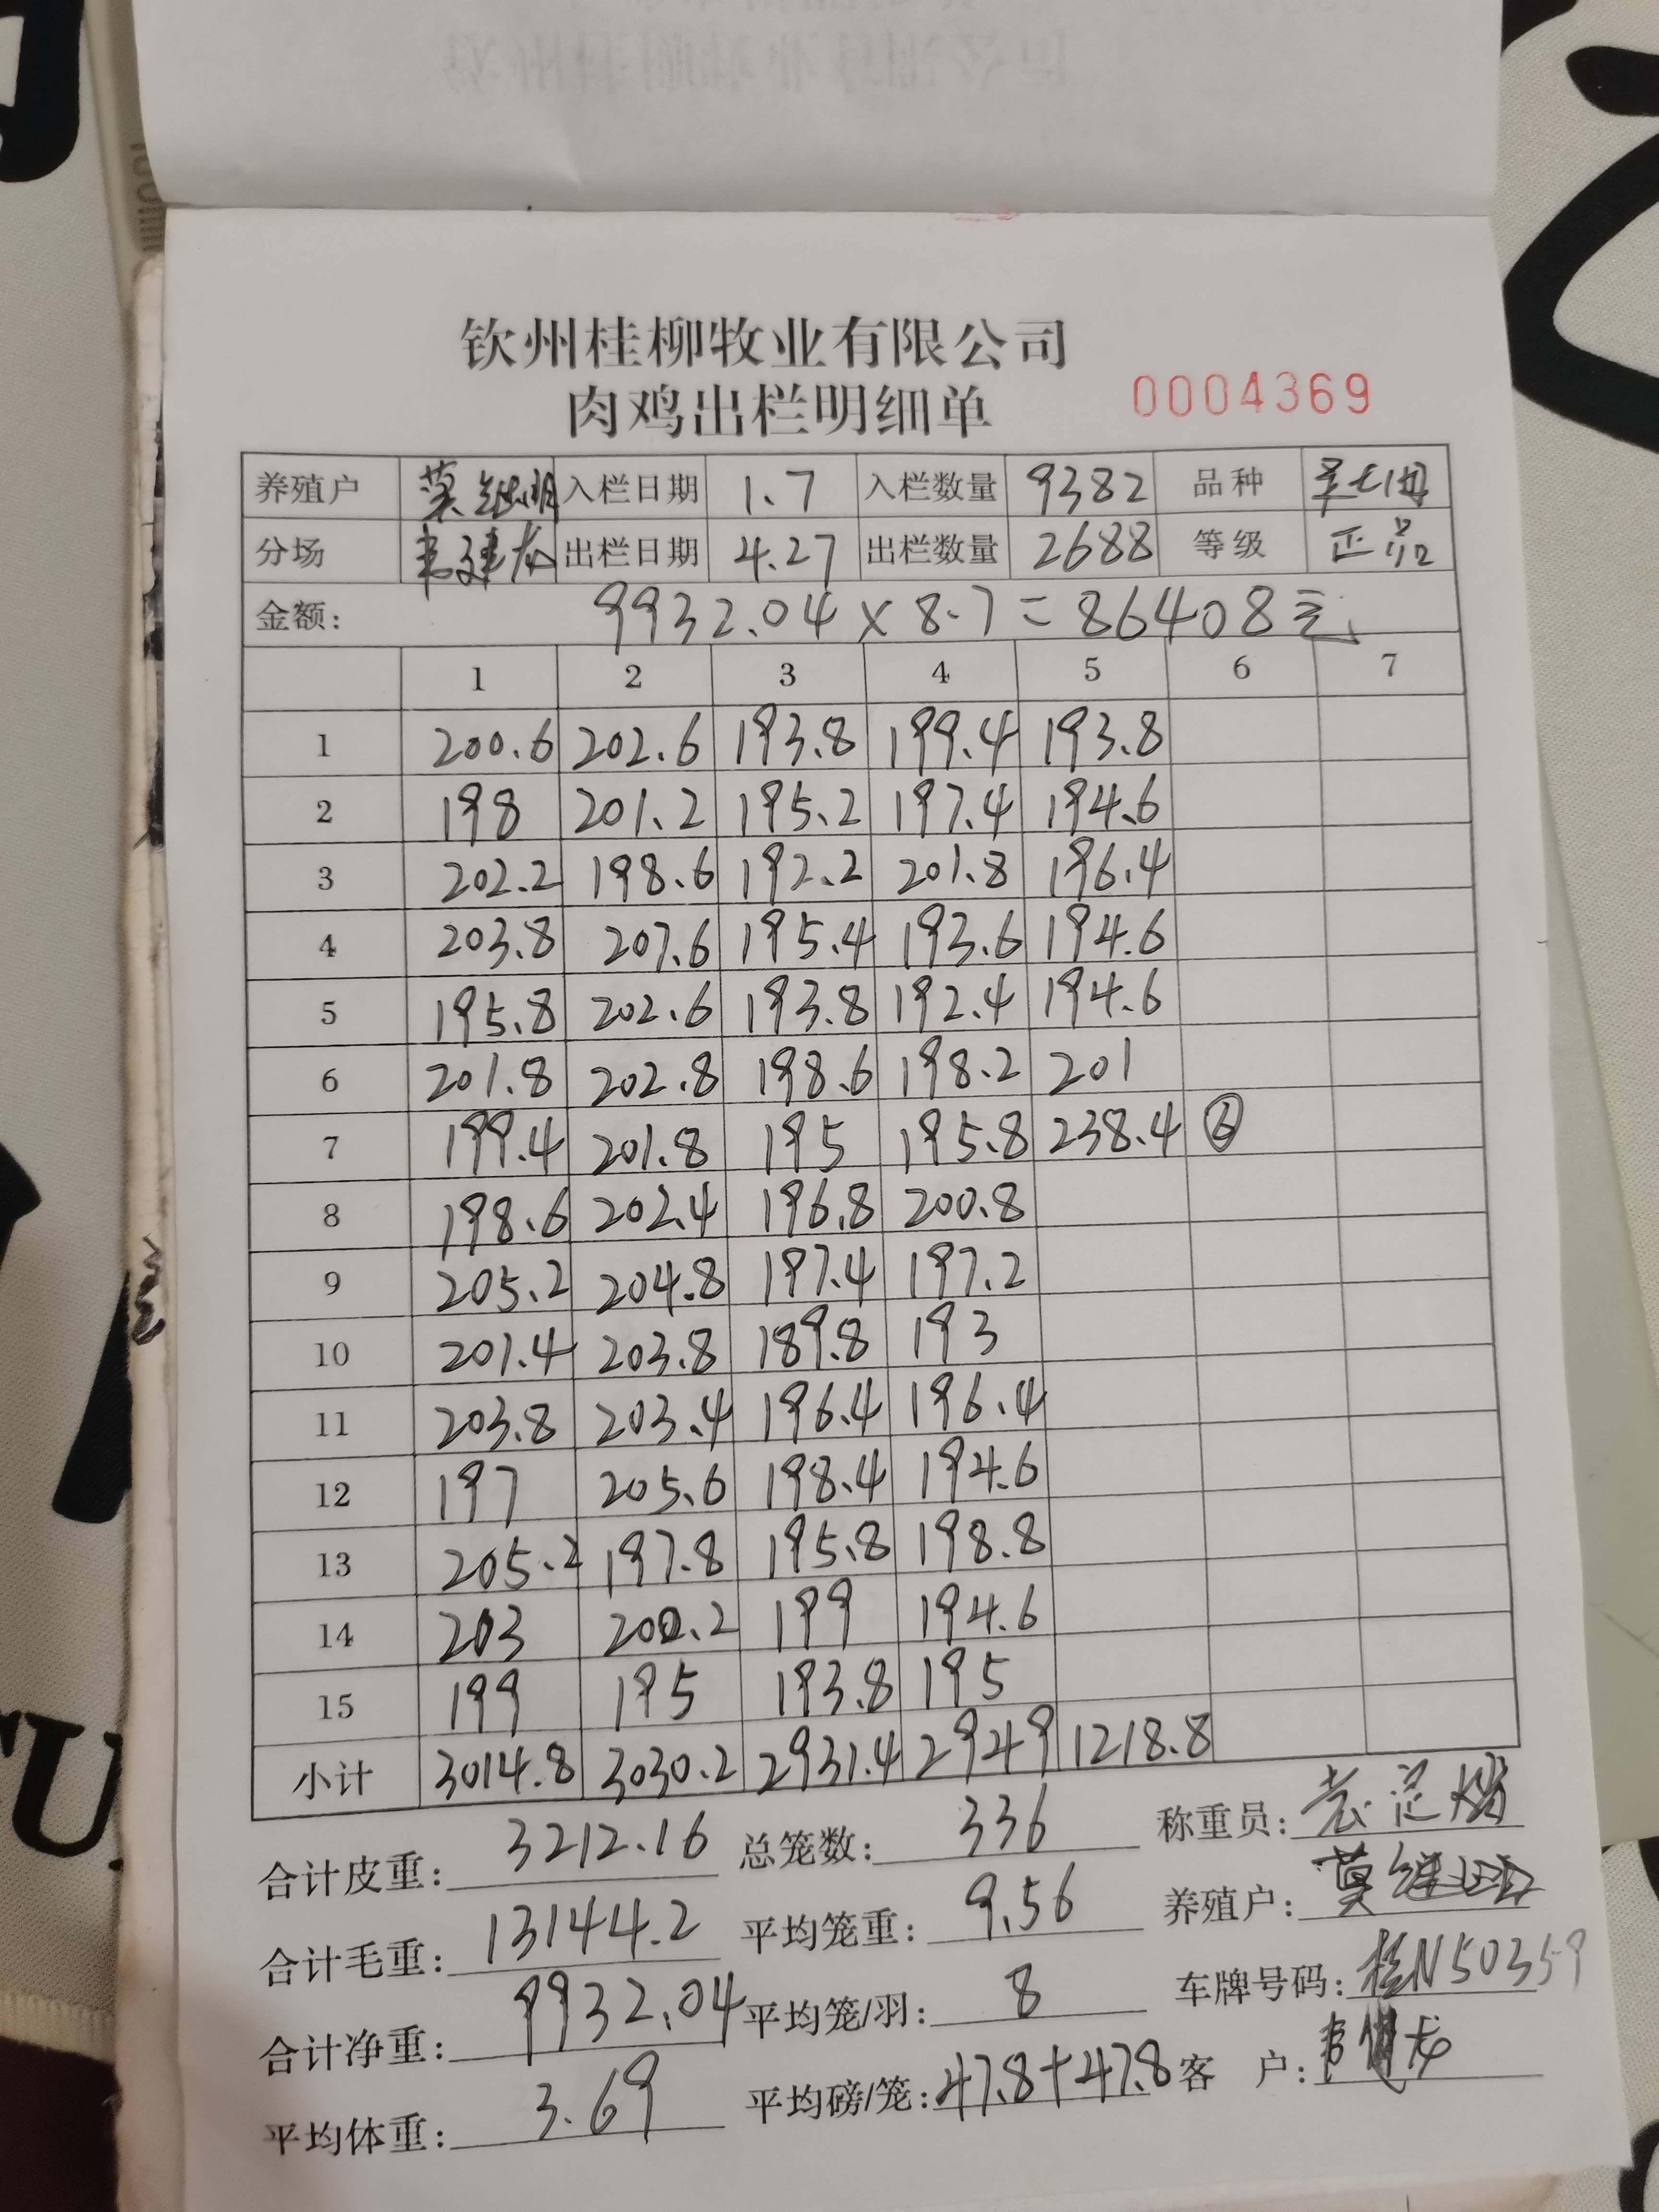 钦州桂柳牧业有限公司
肉鸡出栏明细单 0004369
养殖户 莫继明 入栏日期 1.7 入栏数量 9382 品种
分场 出栏日期 4.27 出栏数量 2688 等级 正品
金额: 9932.04×8.7=86408元
1 2 3 4 5 6 7
1 200.6 202.6 193.8 199.4 193.8
2 198 201.2 195.2 197.4 194.6
3 202.2 198.6 192.2 201.8 196.4
4 203.8 207.6 195.4 193.6 194.6
5 195.8 202.6 193.8 192.4 194.6
6 201.8 202.8 198.6 198.2 201
7 199.4 201.8 195 195.8 238.4 ⑥
8 198.6 202.4 196.8 200.8
9 205.2 204.8 197.4 197.2
10 201.4 203.8 189.8 193
11 203.8 203.4 196.4 196.4
12 197 205.6 198.4 194.6
13 205.2 197.8 195.8 198.8
14 203 200.2 199 194.6
15 199 195 193.8 195
小计 3014.8 3030.2 2931.4 2949 1218.8
合计皮重: 3212.16 总笼数: 336 称重员:
合计毛重: 13144.2 平均笼重: 9.56 养殖户: 莫继明
合计净重: 9932.04 平均笼/羽: 8 车牌号码: 桂N50359
平均体重: 3.69 平均磅/笼: 47.8+47.8 客 户: